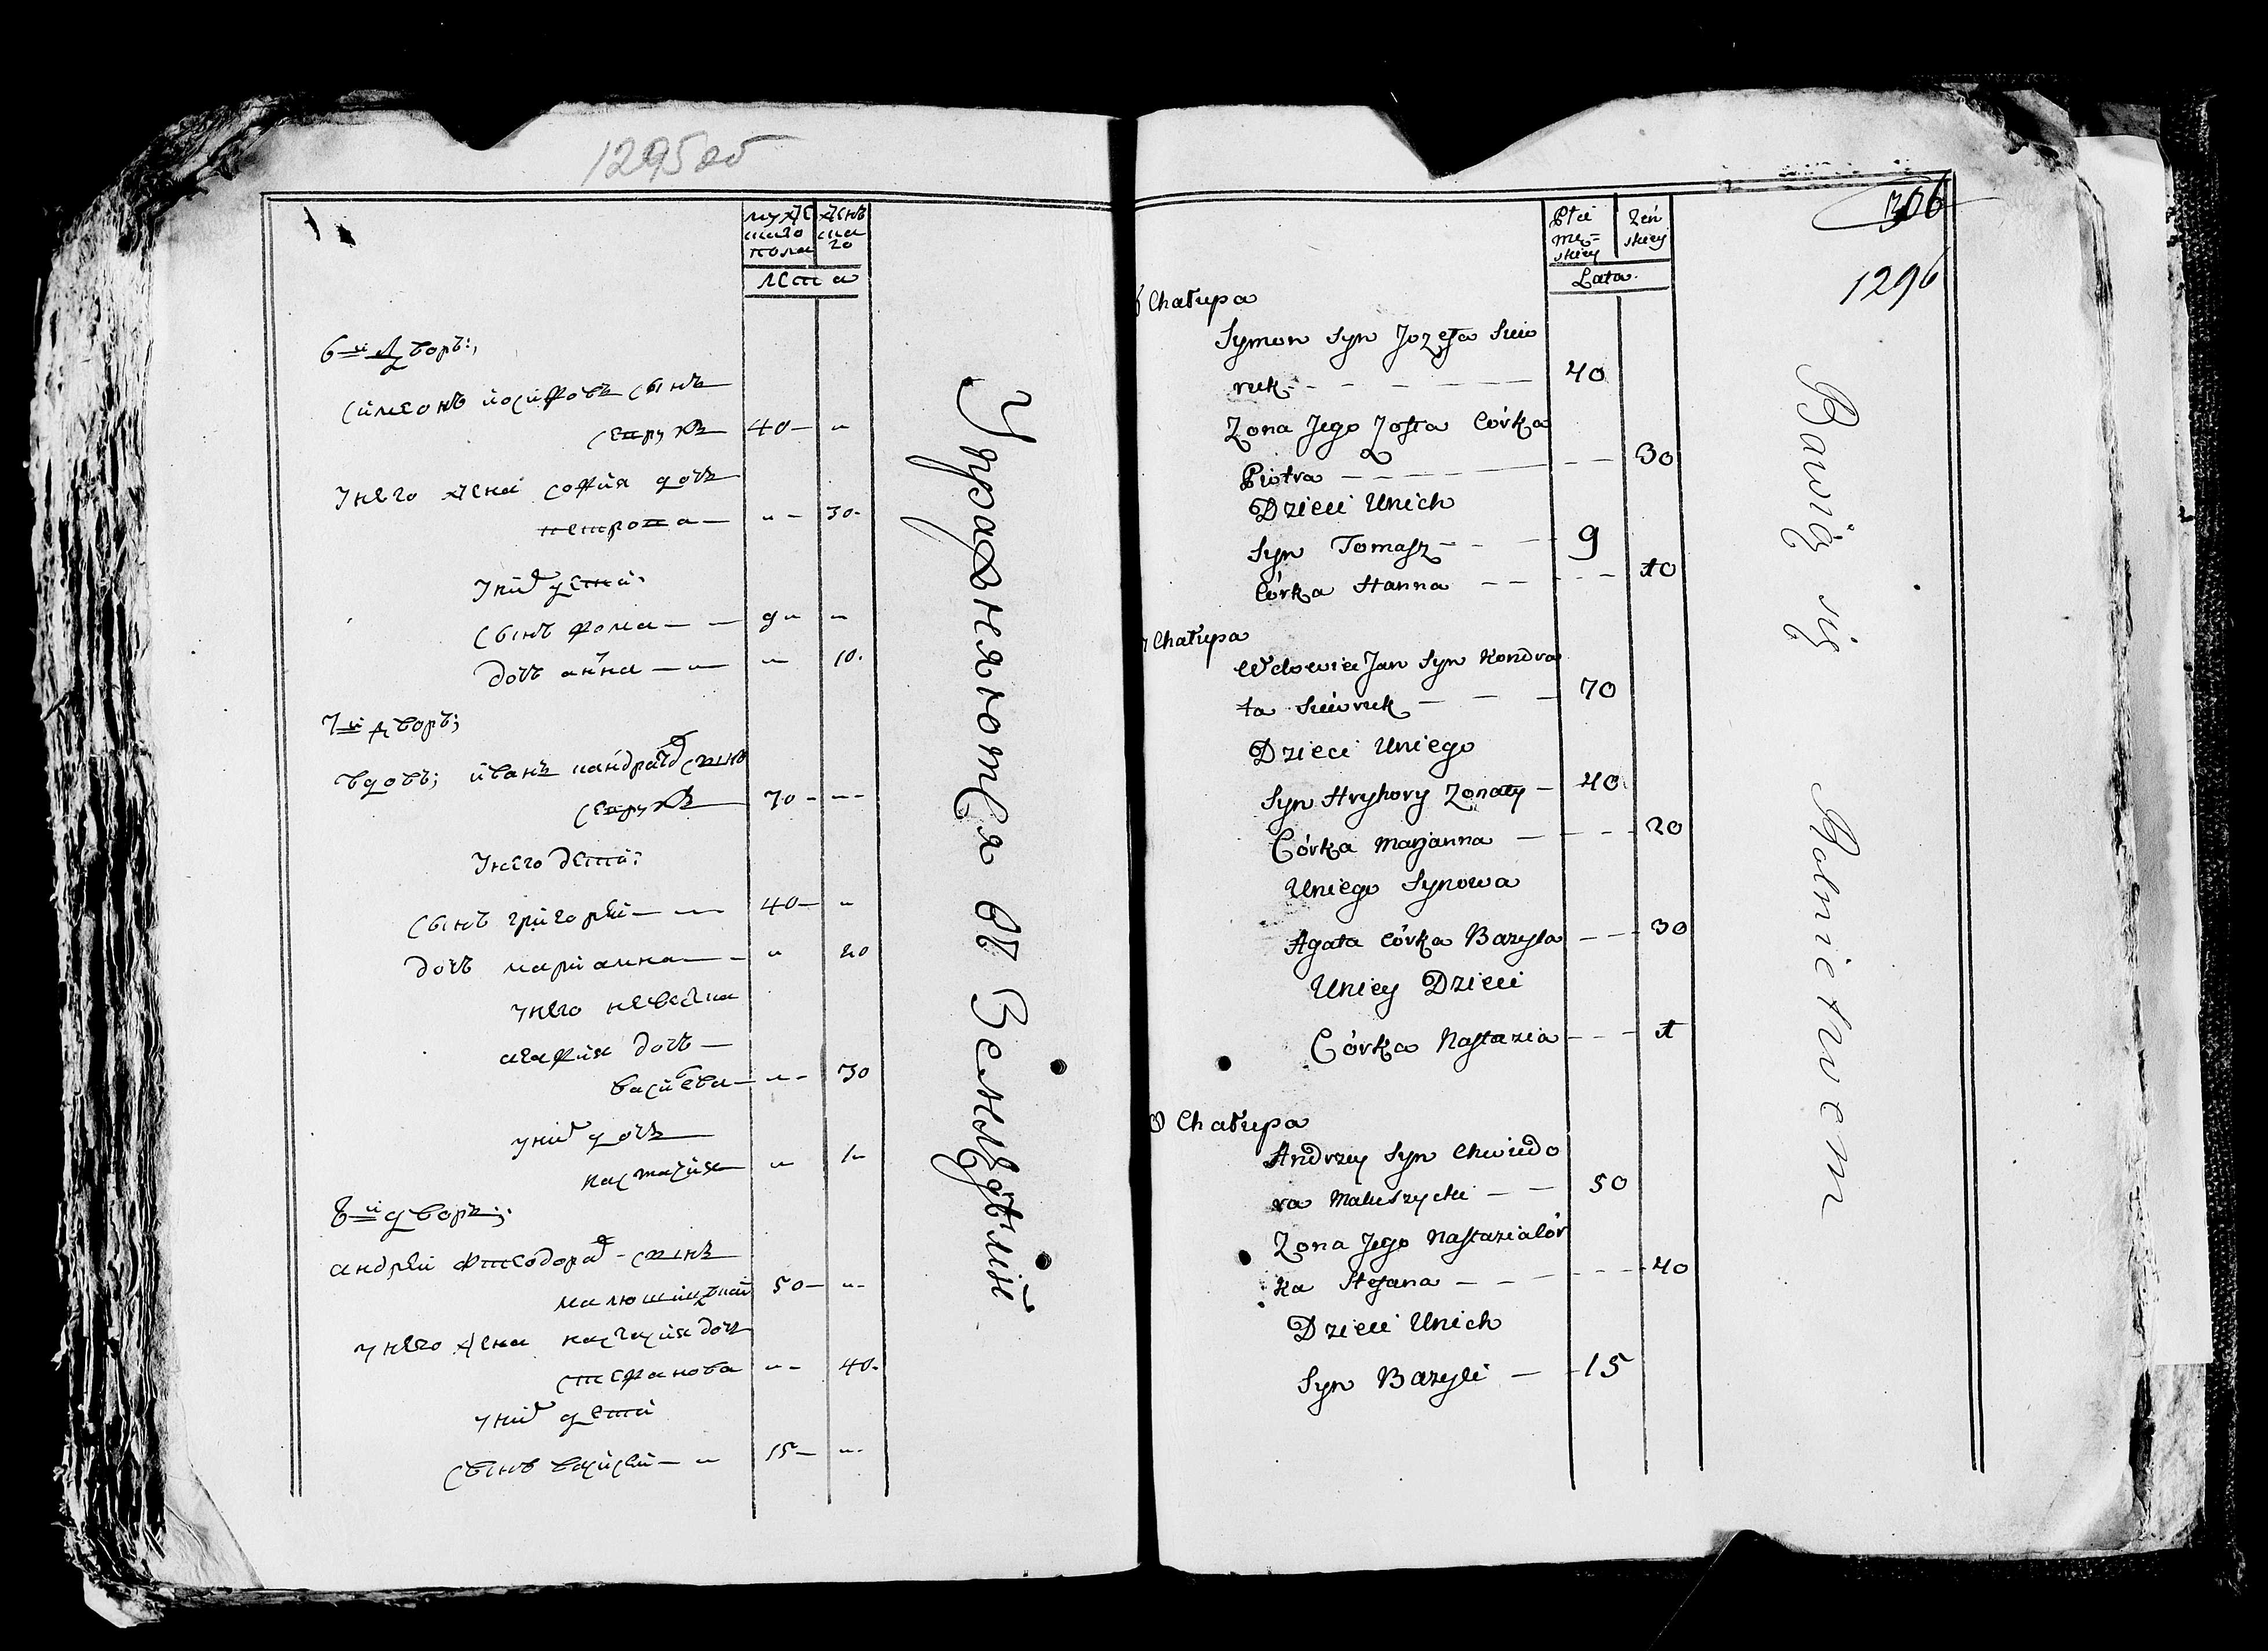 1295 об
мужескаго пола
женскаго
лета
6-й дворъ:
Симеонъ иосифовъ сынъ
40
У него жена софия дочь
петрова 30
У них дети:
сынъ фома 9
дочь анна 10
7-й дворъ;
вдовъ; иванъ кандратов сынъ
70
У него дети:
сынъ григорей 40
дочь марианна 20
у него невестка
агафия дочь
васильева 30
у них дочь
настазия 1
8-й дворъ;
андрей феодоров сынъ
50
у него жена настазия дочь
стефанова 40
у них дети
сынъ василей 15
Упражняются въ Земледѣлии
306
1296
Płci męskiey
Żeńskiey
Lata
6 Chałupa
Symon Syn Jozefa Siw
ruk 40
Zona Jego Zofia Córka
Piotra 30
Dzieci Unich
Syn Tomasz 9
Córka Hanna 10
7 Chałupa
Wdowiec Jan Syn Kondra
ta 70
Dzieci Uniego
Syn Hryhory Zonaty 40
Córka Marjanna 20
Uniego Synowa
Agata Córka Bazyla 30
Uniey Dzieci
Córka Nastazia 1
8 Chałupa
Andrzey Syn Chwiedo
ra Maluszycki 50
Zona Jego Nastazia Cór
ka Stefana 40
Dzieci Unich
Syn Bazyli 15
Bawią się Rolnictwem